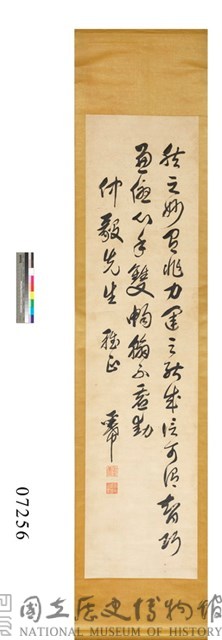 然之妙有非力運之能成信可謂智巧
兼優心手雙暢翰不虛動
仲毅先生 雅正
07256
國立歷史博物館
NATIONAL MUSEUM OF HISTORY